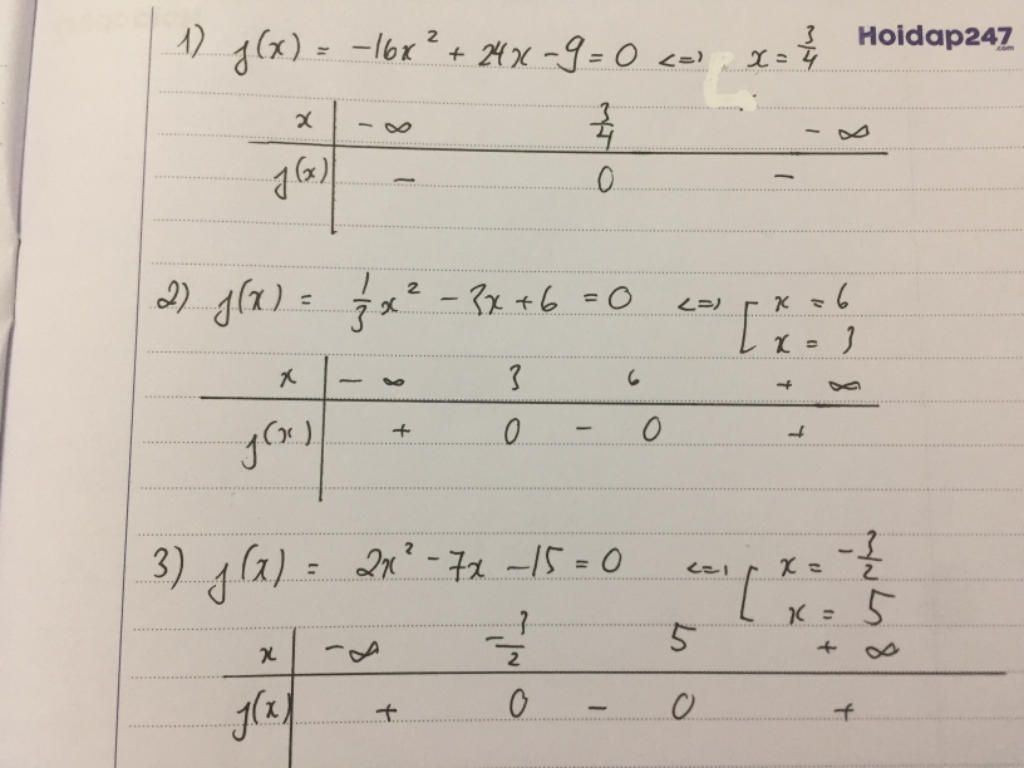 Hoidap247
.com
1) f(x) = -16x² + 24x - 9 = 0 <=> x = 3/4
x | -∞ 3/4 -∞
f(x) | - 0 -
2) f(x) = 1/3 x² - 3x + 6 = 0 <=> [ x = 6
x = 3
x | -∞ 3 6 +∞
f(x) | + 0 - 0 +
3) f(x) = 2x² - 7x - 15 = 0 <=> [ x = -3/2
x = 5
x | -∞ -3/2 5 +∞
f(x) | + 0 - 0 +